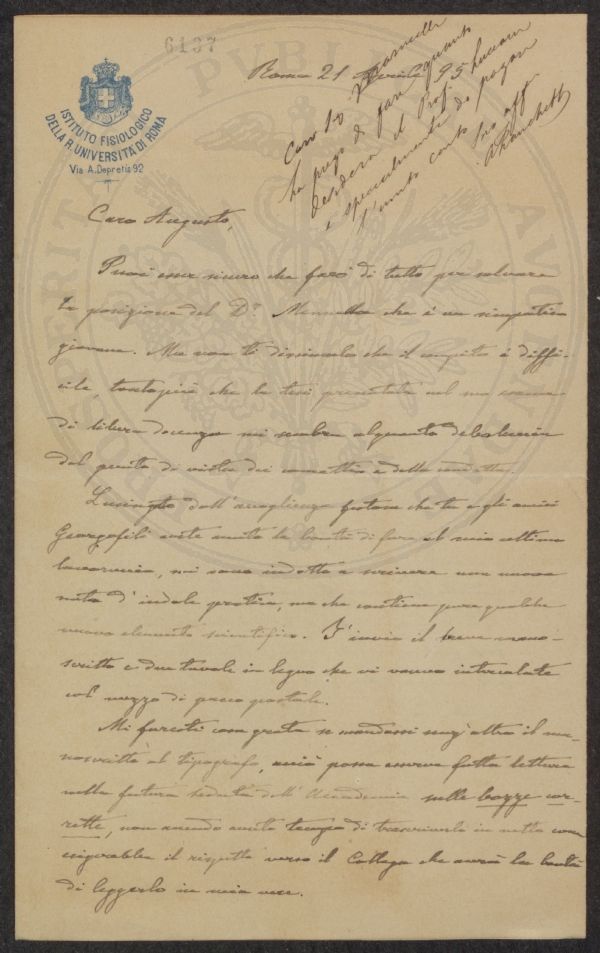 6137
ISTITUTO FISIOLOGICO
DELLA R. UNIVERSITÀ DI ROMA
Via A. Depretis 92
Roma 21 Aprile 95
Caro Sig.
La prego di fare quanto
desidera il Prof. Luciani
e specialmente di pagare
conto
Suo aff
Caro Augusto,
Puoi esser sicuro che farò di tutto per salvare
la posizione del Dr. che è un simpatico
giovane. Ma non ti dissimulo che il compito è diffi-
cile, tantopiù che la tesi presentata nel suo esame
di libera docenza mi sembra alquanto
dal punto di vista dei e della condotta.
Lusingato dall'accoglienza fattami che tu e gli amici
Georgofili avete avuto la bontà di fare al mio ultimo
lavoruccio, mi sono indotto a scrivere una nuova
nota d'indole pratica, ma che contiene pure qualche
nuovo elemento scientifico. T'invio il breve mano-
scritto e due tavole in legno che vi vanno intercalate
col mezzo di pacco postale.
Mi faresti cosa grata se mandassi senz'altro il ma-
noscritto al tipografo, acciò possa esserne fatta lettura
nella futura seduta dell'Accademia sulle bozze cor-
rette, non avendo avuto tempo di trascriverlo in netto come
esigerebbe il rispetto verso il Collega che avrà la bontà
di leggerlo in mia vece.